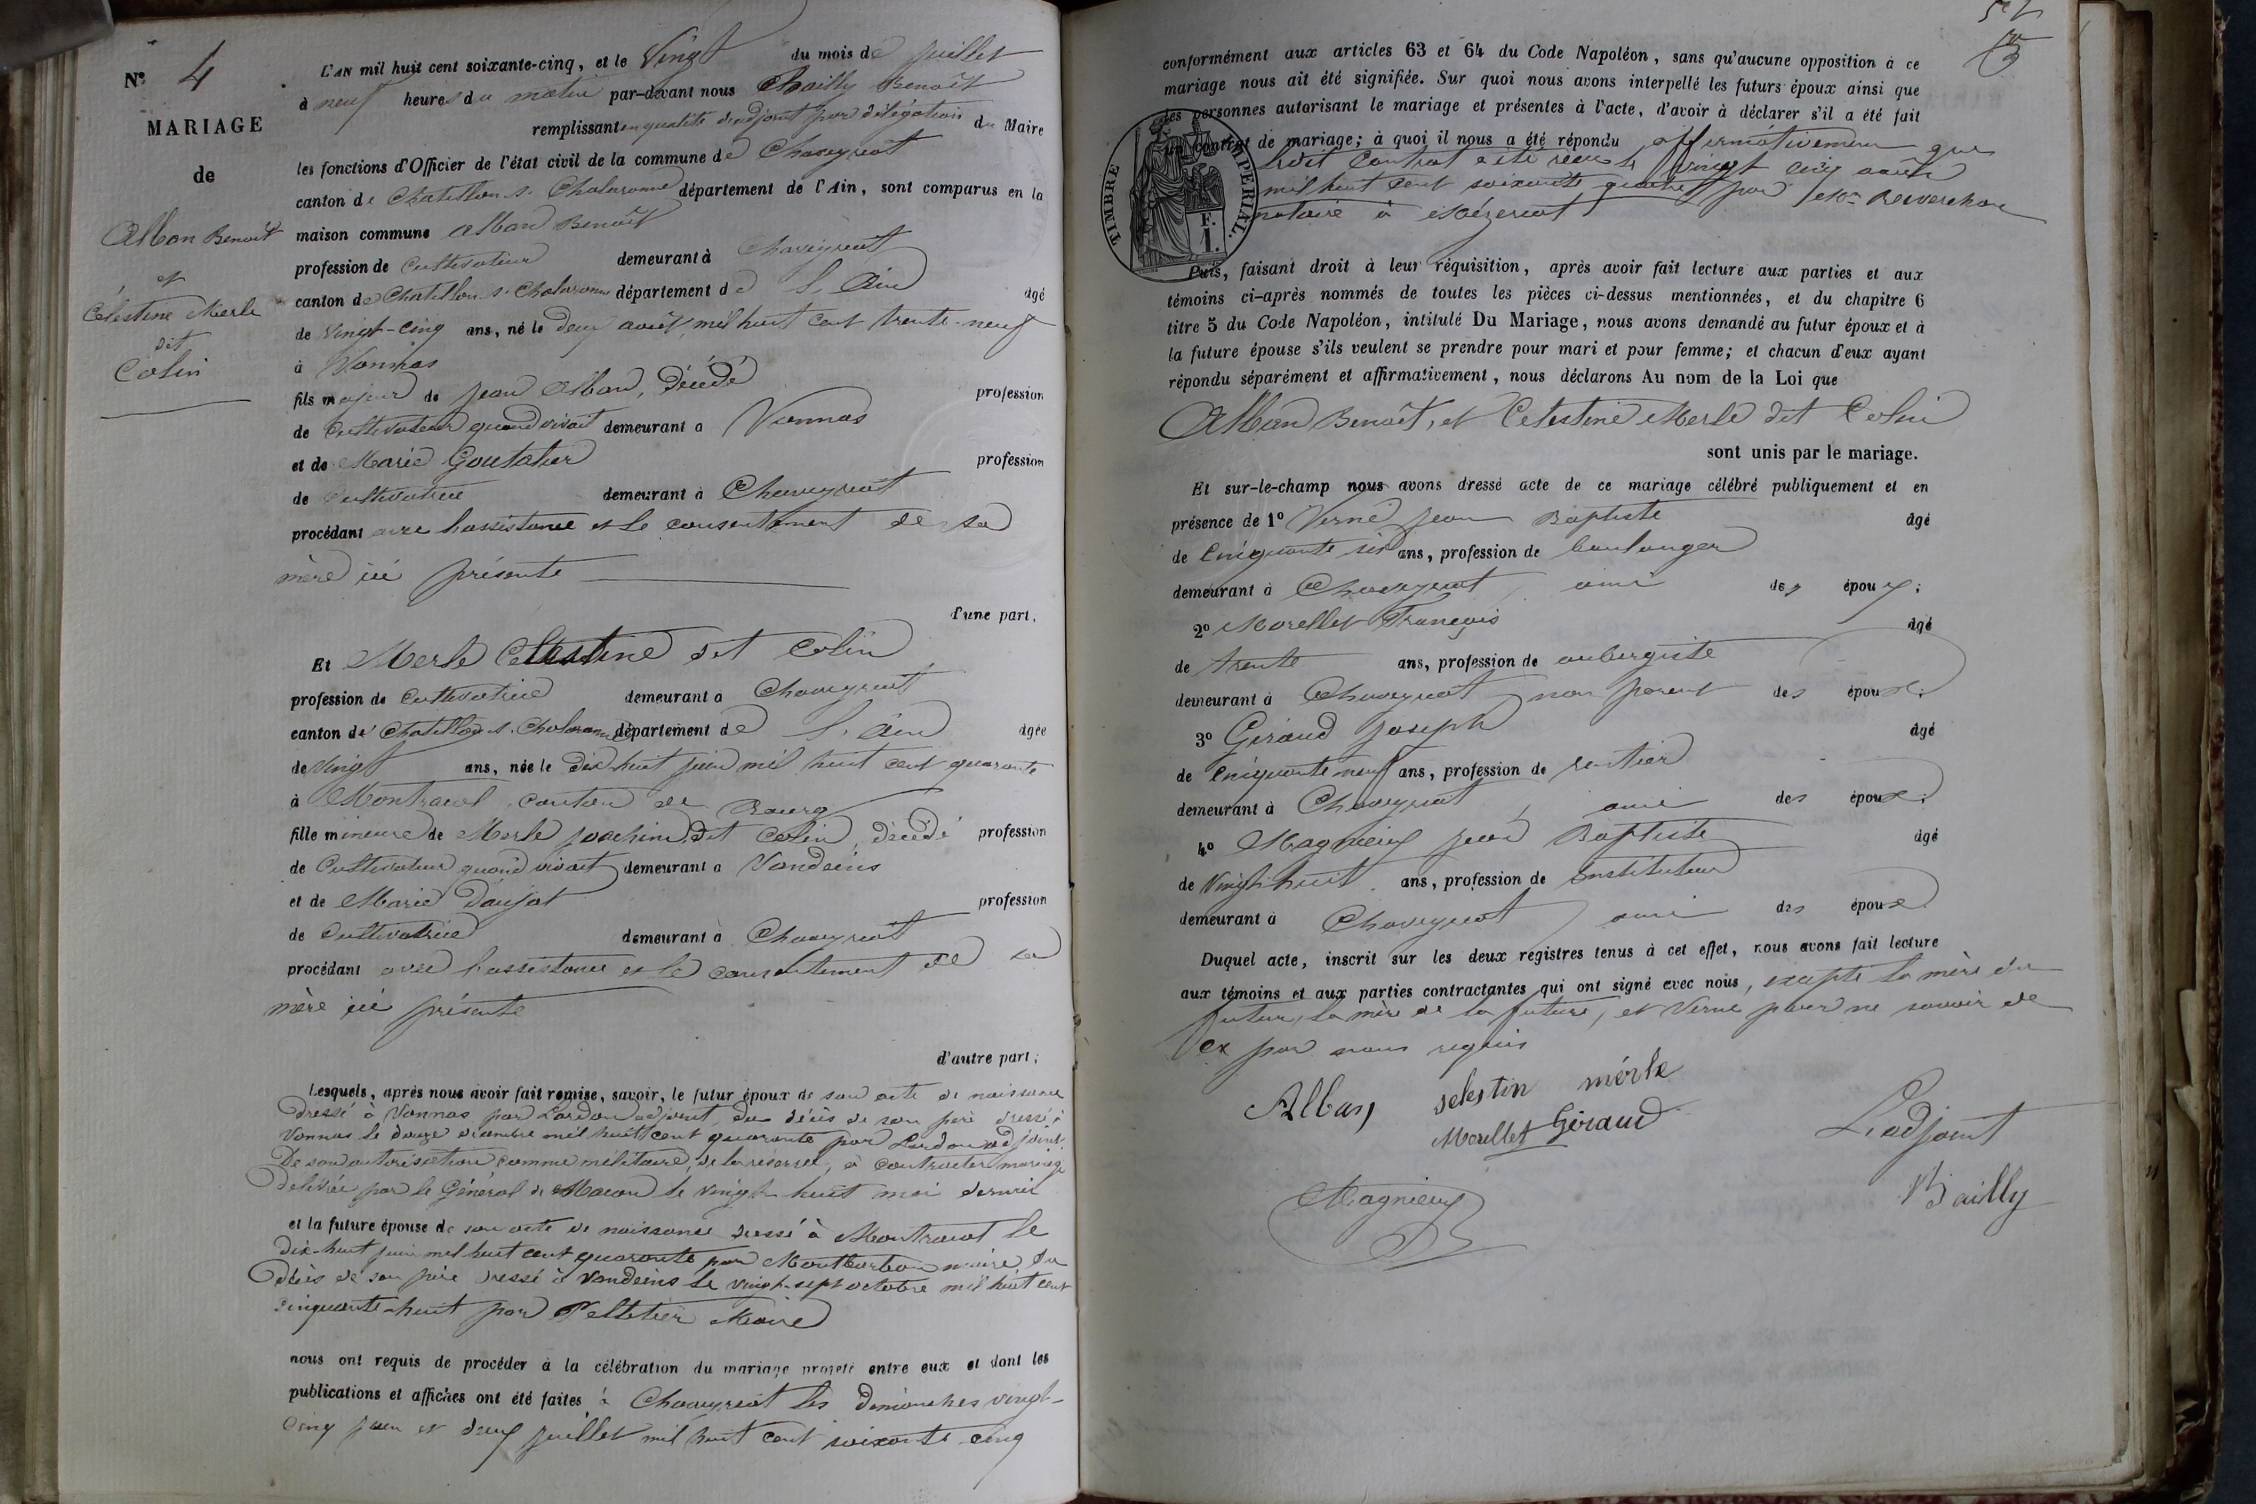 N° 4
MARIAGE
de
Alban Benoît
et
Célestine Merle
dit
Colin
L'AN mil huit cent soixante-cinq, et le Vingt du mois de juillet
à neuf heures du matin par-devant nous Bailly Benoît
remplissant en qualité d'adjoint par délégation du Maire
les fonctions d'Officier de l'état civil de la commune de Chaveyriat
canton de Chatillon s. Chalaronne département de l'Ain, sont comparus en la
maison commune Alban Benoît
profession de Cultivateur demeurant à Chaveyriat
canton de Chatillon s. Chalaronne département de L'Ain âgé
de vingt-cinq ans, né le deux août mil huit cent trente-neuf
à Vonnas
fils majeur de Jean Alban, décédé profession
de Cultivateur quand vivait demeurant à Vonnas
et de Marie Goutatier profession
de Cultivatrice demeurant à Chaveyriat
procédant avec l'assistance et le consentement de sa
mère ici présente
d'une part,
Et Merle Célestine dit Colin
profession de Cultivatrice demeurant à Chaveyriat
canton de Chatillon s. Chalaronne département de L'Ain âgée
de vingt ans, née le dix-huit juin mil huit cent quarante
à Montracol canton de Bourg
fille mineure de Merle Joachim dit Colin, décédé profession
de Cultivateur quand vivait demeurant à Vandeins
et de Marie Daujat profession
de Cultivatrice demeurant à Chaveyriat
procédant avec l'assistance et le consentement de sa
mère ici présente
d'autre part;
Lesquels, après nous avoir fait remise, savoir, le futur époux de son acte de naissance
dressé à Vonnas par Lardon adjoint, du décès de son père dressé à
Vonnas le douze décembre mil huit cent quarante par Lardon adjoint
De son autorisation comme militaire de la réserve, à contracter mariage
délivrée par le Général de Macon le vingt huit mai dernier
et la future épouse de son acte de naissance dressé à Montracol le
dix-huit juin mil huit cent quarante par Montbarbon maire du
décès de son père dressé à Vandeins le vingt-sept octobre mil huit cent
cinquante-huit par Pelletier Maire
nous ont requis de procéder à la célébration du mariage projeté entre eux et dont les
publications et affiches ont été faites à Chaveyriat les dimanches vingt-
cinq juin et deux juillet mil huit cent soixante cinq
conformément aux articles 63 et 64 du Code Napoléon, sans qu'aucune opposition à ce
mariage nous ait été signifiée. Sur quoi nous avons interpellé les futurs époux ainsi que
les personnes autorisant le mariage et présentes à l'acte, d'avoir à déclarer s'il a été fait
un contrat de mariage; à quoi il nous a été répondu affirmativement que
ledit contrat a été reçu le vingt cinq août
mil huit cent soixante quatre par
notaire à Mézériat
TIMBRE IMPERIAL.
F.
1.
Puis, faisant droit à leur réquisition, après avoir fait lecture aux parties et aux
témoins ci-après nommés de toutes les pièces ci-dessus mentionnées, et du chapitre 6
titre 5 du Code Napoléon, intitulé Du Mariage, nous avons demandé au futur époux et à
la future épouse s'ils veulent se prendre pour mari et pour femme; et chacun d'eux ayant
répondu séparément et affirmativement, nous déclarons Au nom de la Loi que
Alban Benoît, et Célestine Merle dit Colin
sont unis par le mariage.
Et sur-le-champ nous avons dressé acte de ce mariage célébré publiquement et en
présence de 1° Verne Jean Baptiste âgé
de Cinquante six ans, profession de boulanger
demeurant à Chaveyriat, ami des époux;
2° Morellet François âgé
de trente ans, profession de aubergiste
demeurant à Chaveyriat non parent des époux;
3° Giraud Joseph âgé
de Cinquante neuf ans, profession de rentier
demeurant à Chaveyriat, ami des époux;
4° Magnieux Jean Baptiste âgé
de Vingt-huit ans, profession de Instituteur
demeurant à Chaveyriat ami des époux
Duquel acte, inscrit sur les deux registres tenus à cet effet, nous avons fait lecture
aux témoins et aux parties contractantes qui ont signé avec nous, excepté la mère du
futur, la mère de la future, et Verne pour ne savoir de
ce par nous requis
Alban selestin mérle
Morellet Giraud
L'adjoint
Magnieux
Bailly